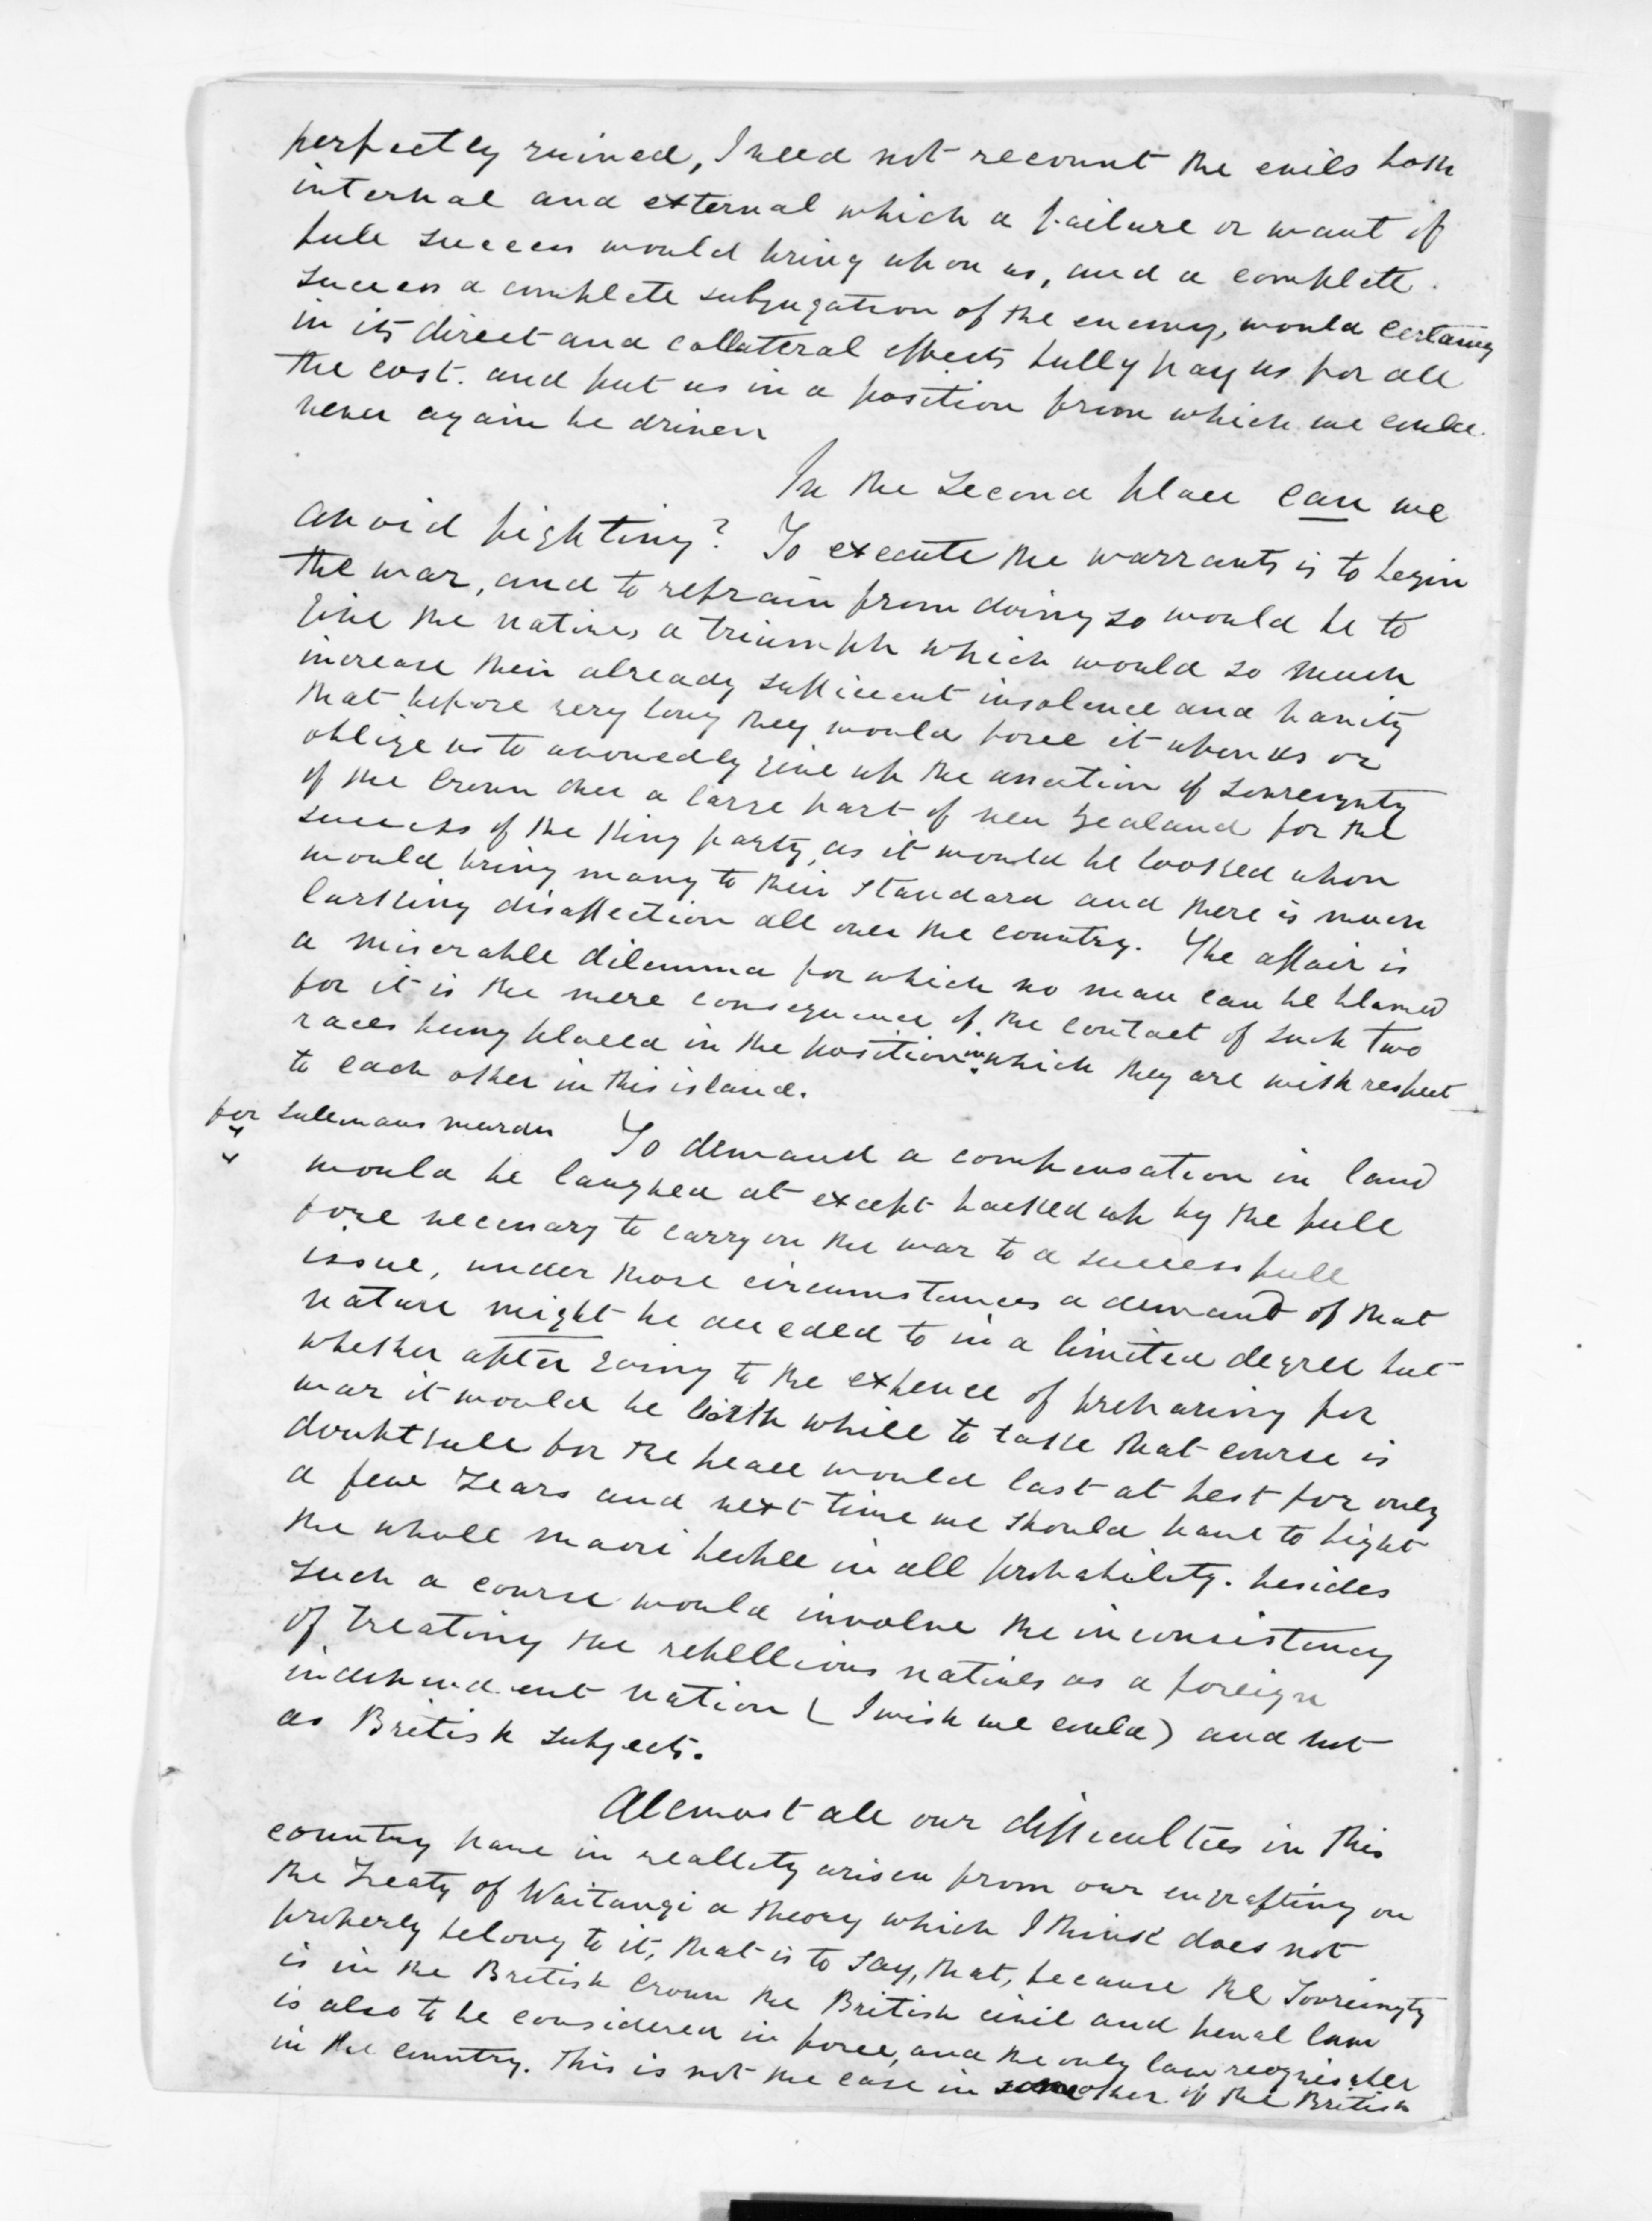 perfectly ruined, I need not recount the evils both
internal and external which a failure or want of
full success would bring upon us, and a complete
success a complete subjugation of the enemy, would certainly
in its direct and collateral effects fully pay us for all
the cost. and put us in a position from which we could
never again be driven
In the second place can we
avoid fighting? To execute the warrants is to begin
the war, and to refrain from doing so would be to
give the natives a triumph which would so much
increase their already sufficient insolence and vanity
that before very long they would force it upon us or
oblige us to avowedly give up the assertion of sovreignty
of the Crown over a large part of new Zealand for the
success of the King party, as it would be looked upon
would bring many to their standard and there is much
lurking disaffection all over the country. The affair is
a miserable dilemma for which no man can be blamed
for it is the mere consequence of the contact of such two
races being placed in the position in which they are with respect
to each other in this island.
for Sulemans murder To demand a compensation in land
would be laughed at except backed up by the full
force necessary to carry on the war to a successfull
issue, under those circumstances a demand of that
nature might be acceded to in a limited degree but
whether after going to the expence of preparing for
war it would be worth while to take that course is
doubtfull for the peace would last at best for only
a few years and next time we should have to fight
the whole maori people in all probability. besides
such a course would involve the inconsistency
of treating the rebellious natives as a foreign
independent nation (I wish we could) and not
as British subjects.
Allmost all our difficulties in this
country have in reallity arisen from our engrafting on
the Treaty of Waitangi a theory which I think does not
properly belong to it, that is to say, that, because the Sovreingty
is in the British Crown the British civil and penal law
is also to be considered in force, and the only law recognisable
in the country. This is not the case in other of the British